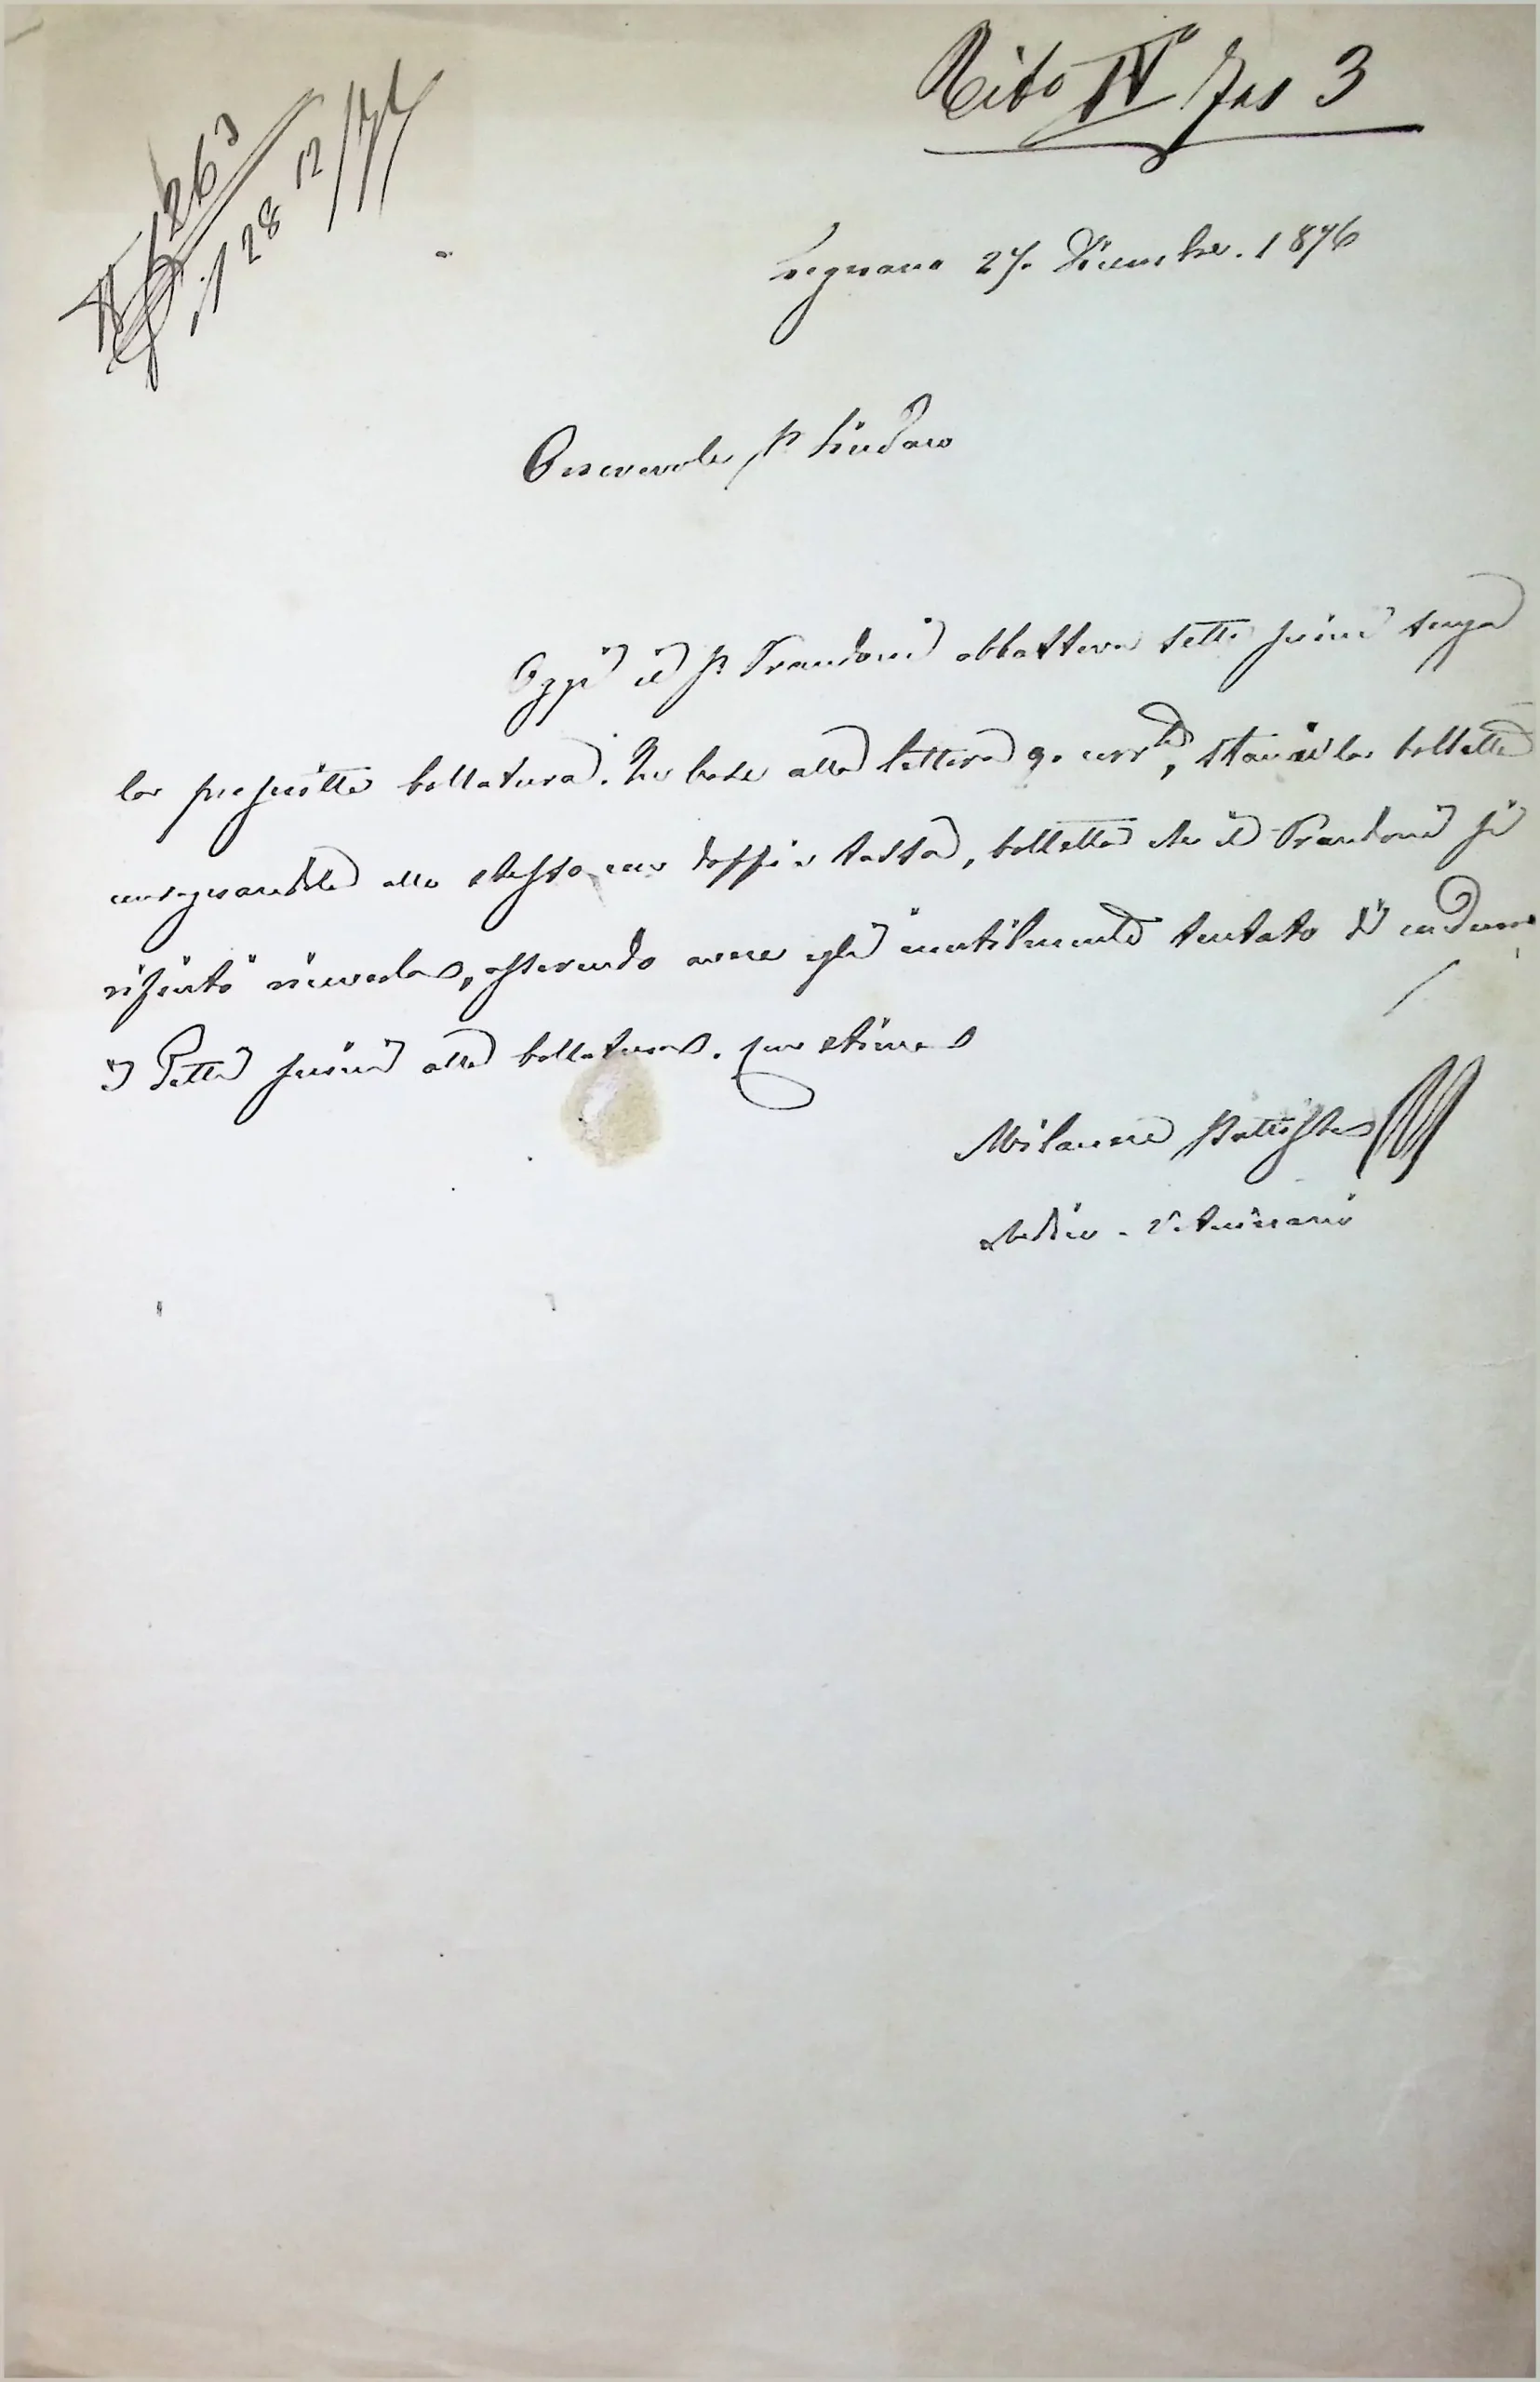 N 1263
il 28 12/76
Tito IV Fas 3
Legnano 27. Dicembre. 1876
Onorevole Sr Sindaco
Oggi il Sr Prandoni abbatteva sette suini senza
la prescritta bollatura. In base alla lettera 9. corrte, staccai la bolletta
consegnandola allo stesso con doppia tassa, bolletta che il Prandoni si
rifiutò riceverla, asserendo avere egli inutilmente tentato di condurre
i sette suini alla bollatura. Con stima
Milanesi Battista
Medico - Veterinario